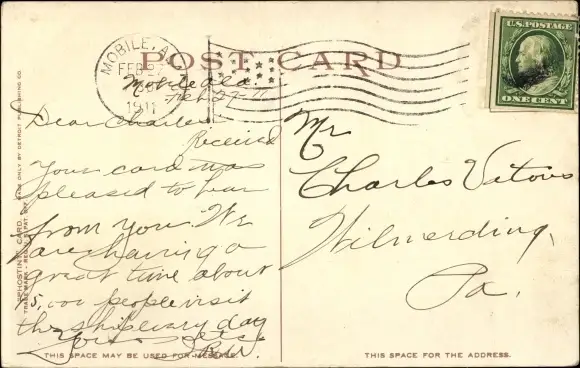 POST CARD
MOBILE, ALA.
FEB 27
1911
U.S. POSTAGE
ONE CENT
Mobile Ala.
Feb 27-11
Dear Charles
Received
your card was
pleased to hear
from you. We
are having a
great time about
5,000 people visit
this ship every day
Mr
Charles
Wilmerding,
Pa.
"PHOSTINT" CARD
MADE ONLY BY DETROIT PUBLISHING CO.
THIS SPACE MAY BE USED FOR MESSAGE.
THIS SPACE FOR THE ADDRESS.